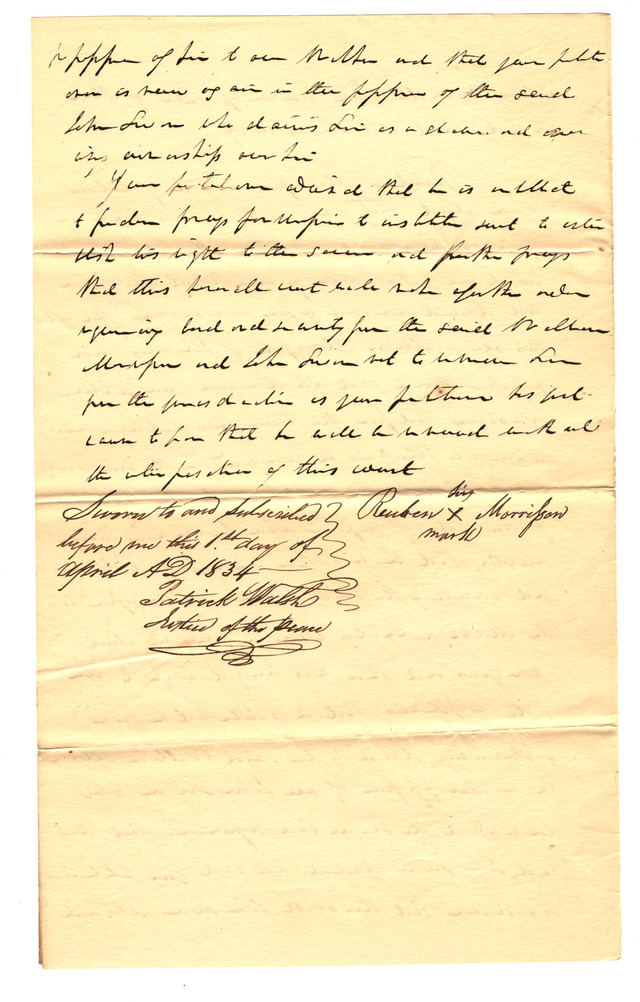 of him to one and that your petiti
oner is now again in the possession of the said
John who claims him as a slave and exer
ises ownership over him
Your petitioner advised that he is entitled
to freedom prays for permission to institute suit to estab
lish his right to the same and further prays
that this court will make a further order
requiring bond and security from the said
and John not to remove him
from the jurisdiction as your petitioner has just
cause to fear that he will be removed without
the interposition of this court
Sworn to and subscribed
before me this 1st day of
April A D 1834
Patrick Walsh
Justice of the peace
his
Reuben X Morrisson
mark